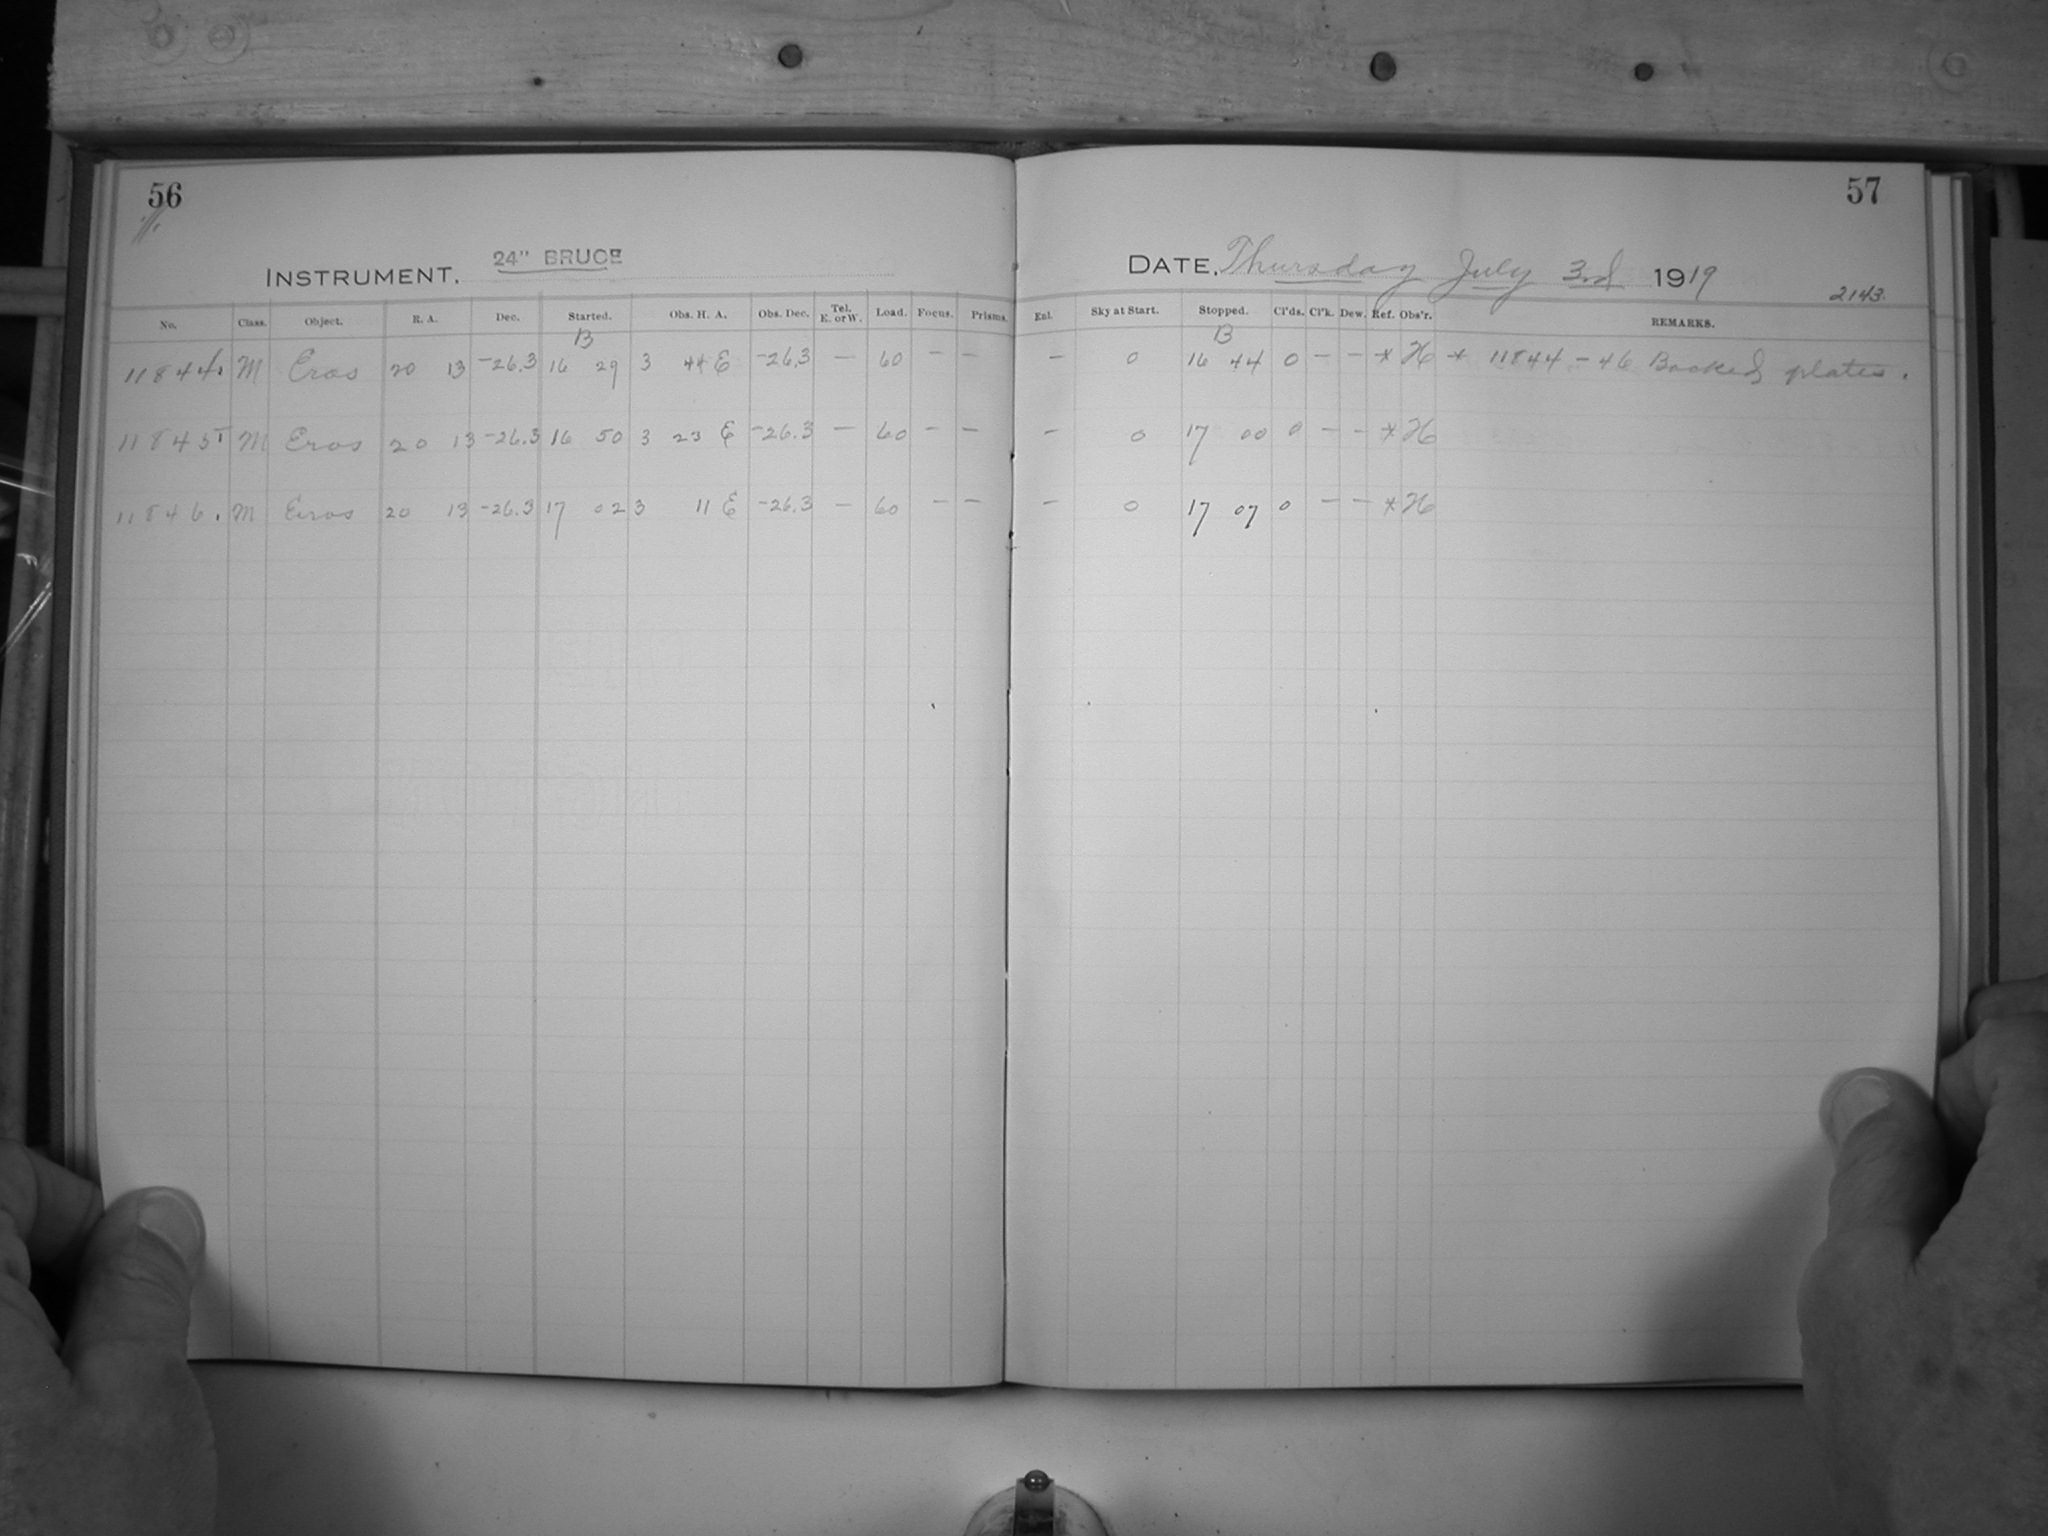 56
INSTRUMENT. 24" BRUCE
No. Class. Object. R. A. Dec. Started. Obs. H. A. Obs. Dec. Tel. E. or W. Load. Focus. Prisms.
B
11844. M Eros 20 13 -26.3 16 29 3 44 E -26.3 — 60 — —
11845 M Eros 20 13 -26.3 16 50 3 23 E -26.3 — 60 — —
11846. M Eros 20 13 -26.3 17 02 3 11 E -26.3 — 60 — —
57
DATE, Thursday July 3rd 1919
2143.
Enl. Sky at Start. Stopped. Cl'ds. Cl'k. Dew. Ref. Obs'r. REMARKS.
B
— 0 16 44 0 — — * H * 11844-46 Booked plates.
— 0 17 00 0 — — * H
— 0 17 07 0 — — * H